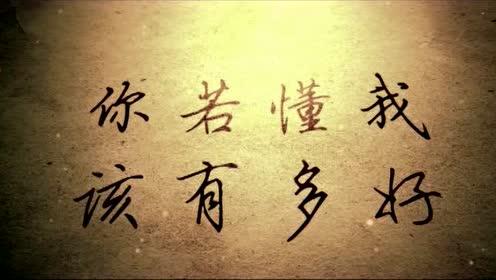 你若懂我
该有多好